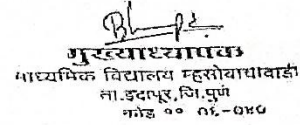 मुख्याध्यापक
माध्यमिक विद्यालय म्हसोबाचीवाडी
ता.इंदापूर,जि.पुणे
कोड ११ १६-०४०